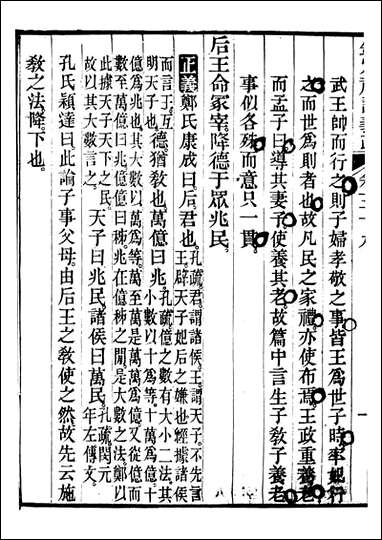 武王帥而行之則子婦孝敬之事皆王爲世子時率妃行
之而世爲則者也故凡民之家禮亦使布焉王政重養老
而孟子曰導其妻子使養其老故篇中言生子敎子養老
事似各殊而意只一貫
后王命冢宰降德于眾兆民
正義鄭氏康成曰后君也孔疏君謂諸侯王謂天子不先言王辟天子妃后之嫌也經據諸侯
而言王互明天子也德猶敎也萬億曰兆孔疏億之數有大小二法其小數以十爲等十萬爲億十
億爲兆也其大數以萬爲等萬至萬是萬萬爲億又從億而數至萬億曰兆億億曰秭兆在億秭之間是大數之法鄭以
此據天子天下之民故以其大數言之天子曰兆民諸侯曰萬民孔疏閔元年左傳文
孔氏穎達曰此論子事父母由后王之敎使之然故先云施
敎之法降下也